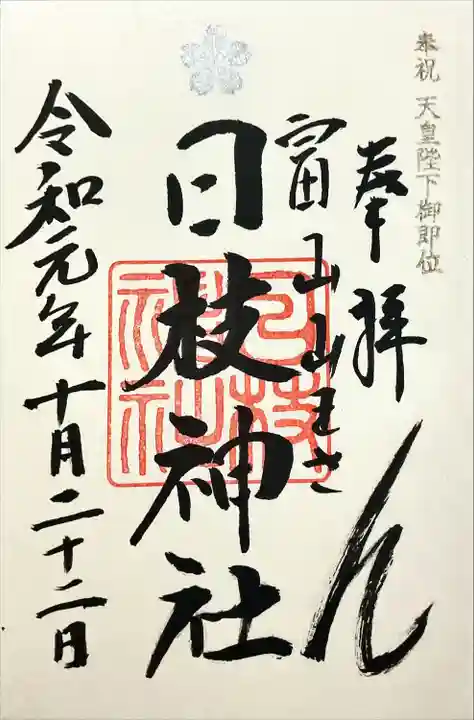 奉祝 天皇陛下御即位
奉拝
富山山王さん
日枝神社
日枝神社
令和元年十月二十二日